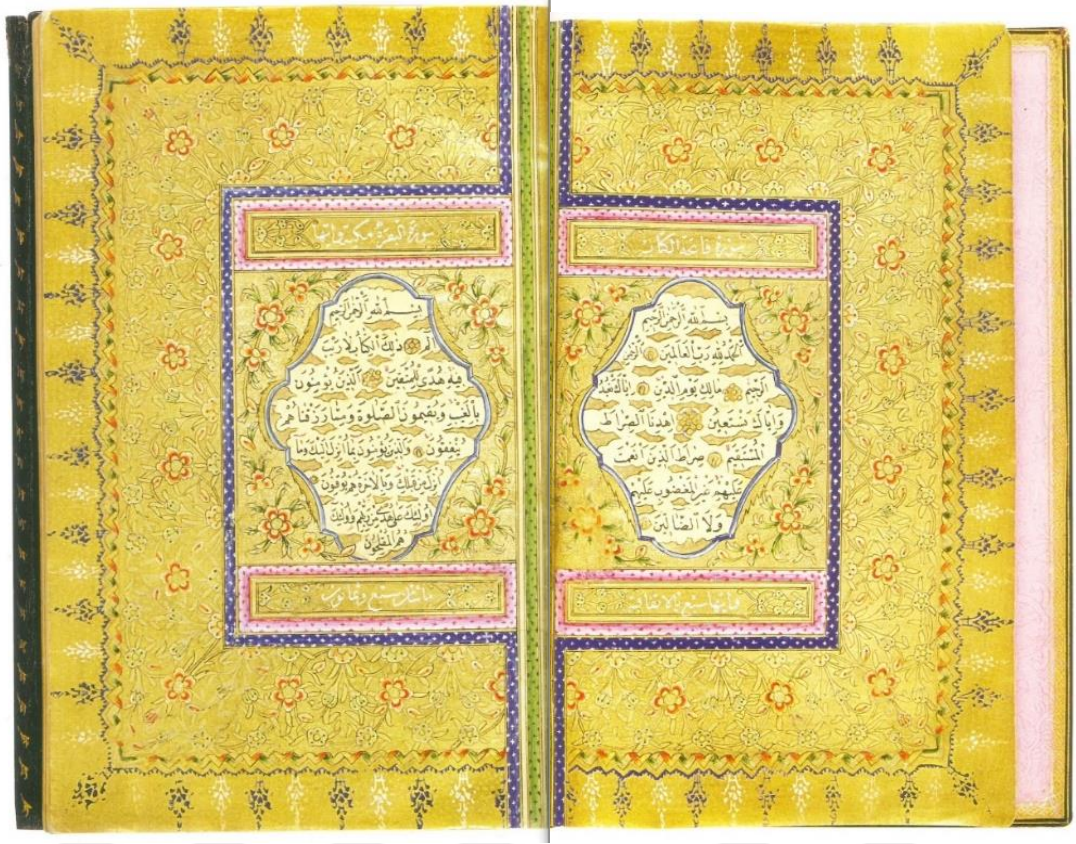 سورة فاتحة الكتاب
بسم الله الرحمن الرحيم
الحمد لله رب العالمين الرحمن
الرحيم مالك يوم الدين اياك نعبد
واياك نستعين اهدنا الصراط
المستقيم صراط الذين انعمت
عليهم غير المغضوب عليهم
ولا الضالين
سورة البقرة
بسم الله الرحمن الرحيم
الم ذلك الكتاب لا ريب
فيه هدى للمتقين الذين يؤمنون
بالغيب ويقيمون الصلوة ومما رزقناهم
ينفقون والذين يؤمنون بما انزل اليك وما
انزل من قبلك وبالاخرة هم يوقنون
اولئك على هدى من ربهم واولئك
هم المفلحون